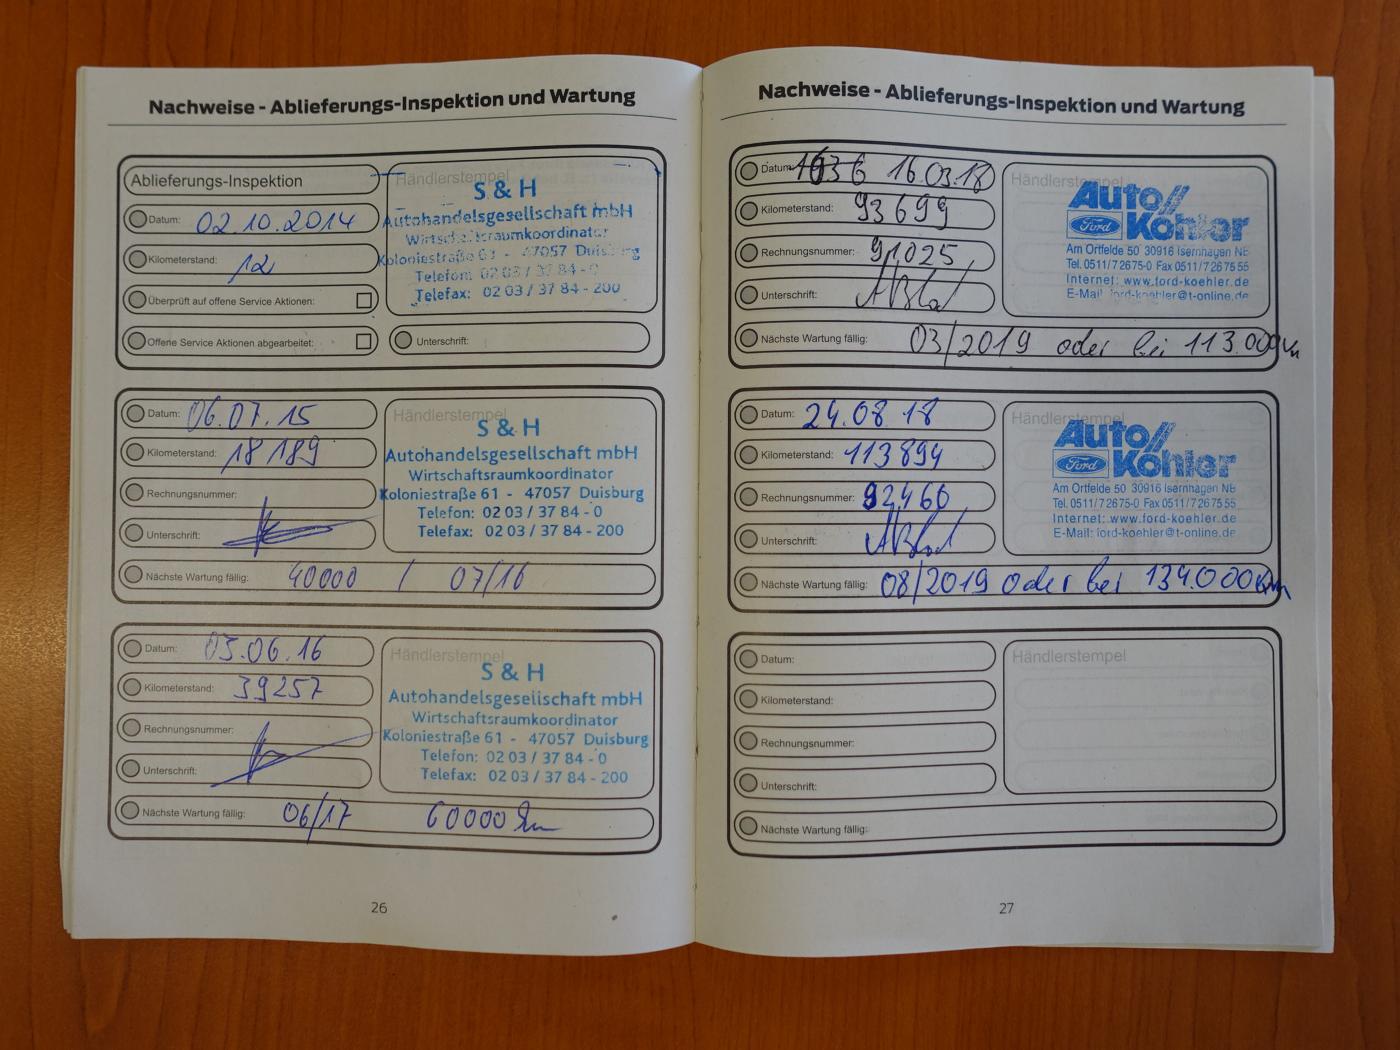 Nachweise - Ablieferungs-Inspektion und Wartung
Ablieferungs-Inspektion
Datum: 02.10.2014
Kilometerstand: 12
Überprüft auf offene Service Aktionen:
Offene Service Aktionen abgearbeitet:
Händlerstempel
S & H
Autohandelsgesellschaft mbH
Wirtschaftsraumkoordinator
Koloniestraße 61 - 47057 Duisburg
Telefon: 02 03 / 37 84 - 0
Telefax: 02 03 / 37 84 - 200
Unterschrift:
Datum: 06.07.15
Kilometerstand: 18189
Rechnungsnummer:
Unterschrift:
Händlerstempel
S & H
Autohandelsgesellschaft mbH
Wirtschaftsraumkoordinator
Koloniestraße 61 - 47057 Duisburg
Telefon: 02 03 / 37 84 - 0
Telefax: 02 03 / 37 84 - 200
Nächste Wartung fällig: 40000 / 07/16
Datum: 03.06.16
Kilometerstand: 39257
Rechnungsnummer:
Unterschrift:
Händlerstempel
S & H
Autohandelsgesellschaft mbH
Wirtschaftsraumkoordinator
Koloniestraße 61 - 47057 Duisburg
Telefon: 02 03 / 37 84 - 0
Telefax: 02 03 / 37 84 - 200
Nächste Wartung fällig: 06/17 60000 km
26
Nachweise - Ablieferungs-Inspektion und Wartung
Datum: 16.03.18
Kilometerstand: 93699
Rechnungsnummer: 91025
Unterschrift:
Händlerstempel
Auto
Ford Köhler
Am Ortfelde 50 30916 Isernhagen NB
Tel. 0511/72675-0 Fax 0511/7267555
Internet: www.ford-koehler.de
E-Mail: ford-koehler@t-online.de
Nächste Wartung fällig: 03/2019 oder bei 113.000km
Datum: 24.08 18
Kilometerstand: 113894
Rechnungsnummer: 92460
Unterschrift:
Händlerstempel
Auto
Ford Köhler
Am Ortfelde 50 30916 Isernhagen NB
Tel. 0511/72675-0 Fax 0511/7267555
Internet: www.ford-koehler.de
E-Mail: ford-koehler@t-online.de
Nächste Wartung fällig: 08/2019 oder bei 134.000km
Datum:
Kilometerstand:
Rechnungsnummer:
Unterschrift:
Händlerstempel
Nächste Wartung fällig:
27